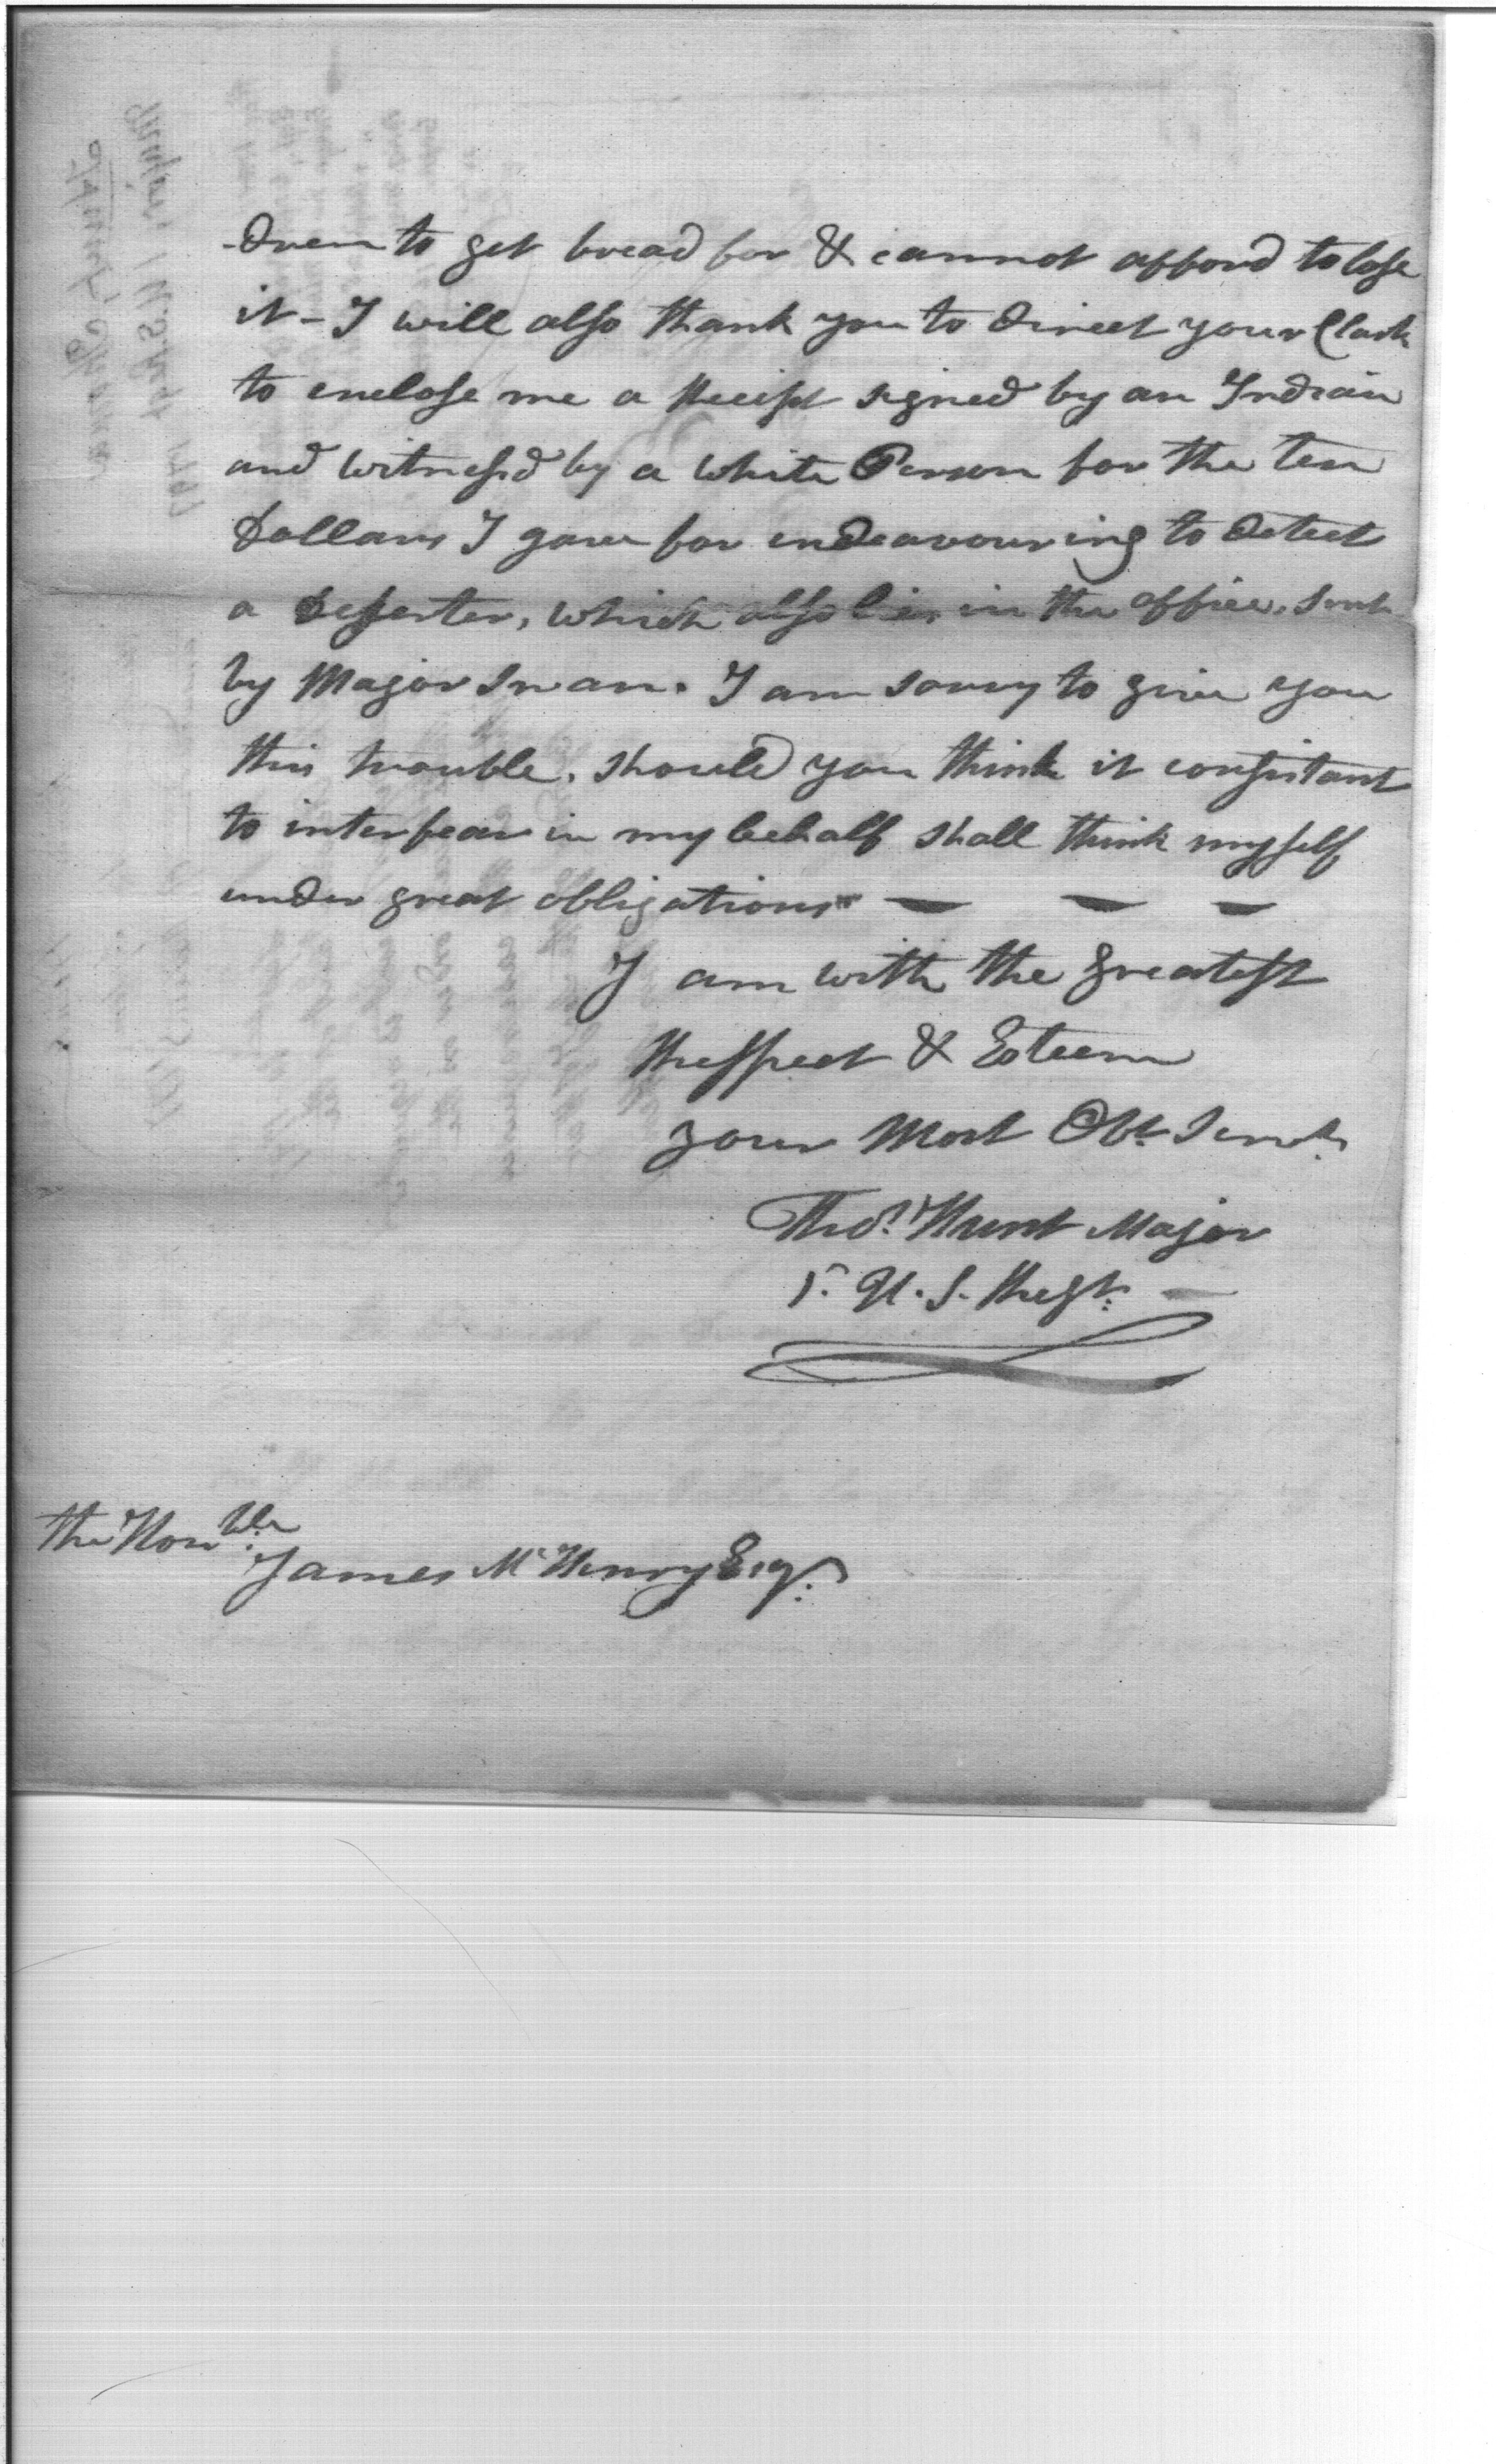 -dren to get bread for & cannot afford to lose
it - I will also thank you to direct your Clark
to enclose me a Receipt signed by an Indian
and witnessd by a white Person for the ten
Dollars I gave for endeavouring to detect
a desserter, which also lies in the office, sent
by Major Swan. I am sorry to give you
this trouble, should you think it consistant
to interfear in my behalf shall think myself
under great obligations
I am with the greatest
Respect & Esteem
your Most Obt. Servt.
Thos. Hunt Major
1. U. S. Regt.
The Honble.
James McHenry Esqr.